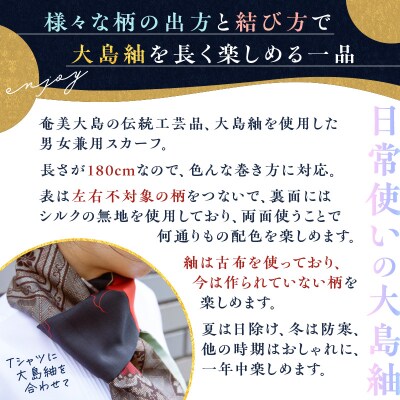 様々な柄の出方と結び方で
大島紬を長く楽しめる一品
enjoy
日常使いの大島紬
奄美大島の伝統工芸品、大島紬を使用した
男女兼用スカーフ。
長さが180cmなので、色んな巻き方に対応。
表は左右不対象の柄をつないで、裏面には
シルクの無地を使用しており、両面使うことで
何通りもの配色を楽しめます。
紬は古布を使っており、
今は作られていない柄を
楽しめます。
夏は日除け、冬は防寒、
他の時期はおしゃれに、
一年中楽しめます。
Tシャツに
大島紬を
合わせて